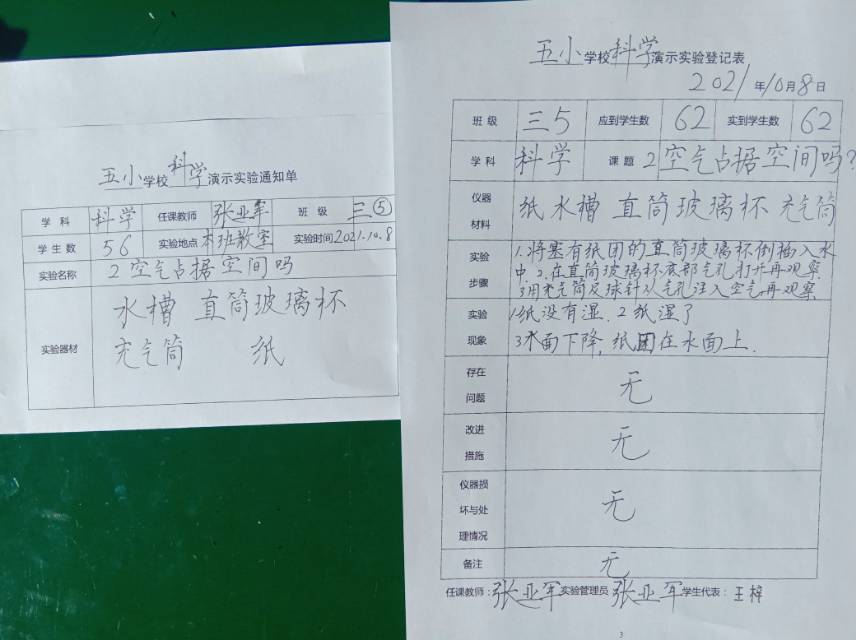 五小学校科学演示实验通知单
学科 科学 任课教师 张亚军 班级 三⑤
学生数 56 实验地点 本班教室 实验时间 2021.10.8
实验名称 2空气占据空间吗
实验器材 水槽 直筒玻璃杯
充气筒 纸
五小学校科学演示实验登记表
2021年10月8日
班级 三5 应到学生数 62 实到学生数 62
学科 科学 课题 2空气占据空间吗?
仪器材料 纸 水槽 直筒玻璃杯 充气筒
实验步骤 1.将塞有纸团的直筒玻璃杯倒插入水
中.2.在直筒玻璃杯底部气孔打开再观察
3用充气筒及球针从气孔注入空气再观察
实验现象 1纸没有湿.2纸湿了
3水面下降,纸团在水面上.
存在问题 无
改进措施 无
仪器损坏与处理情况 无
备注 无
任课教师:张亚军实验管理员张亚军学生代表:王梓
3